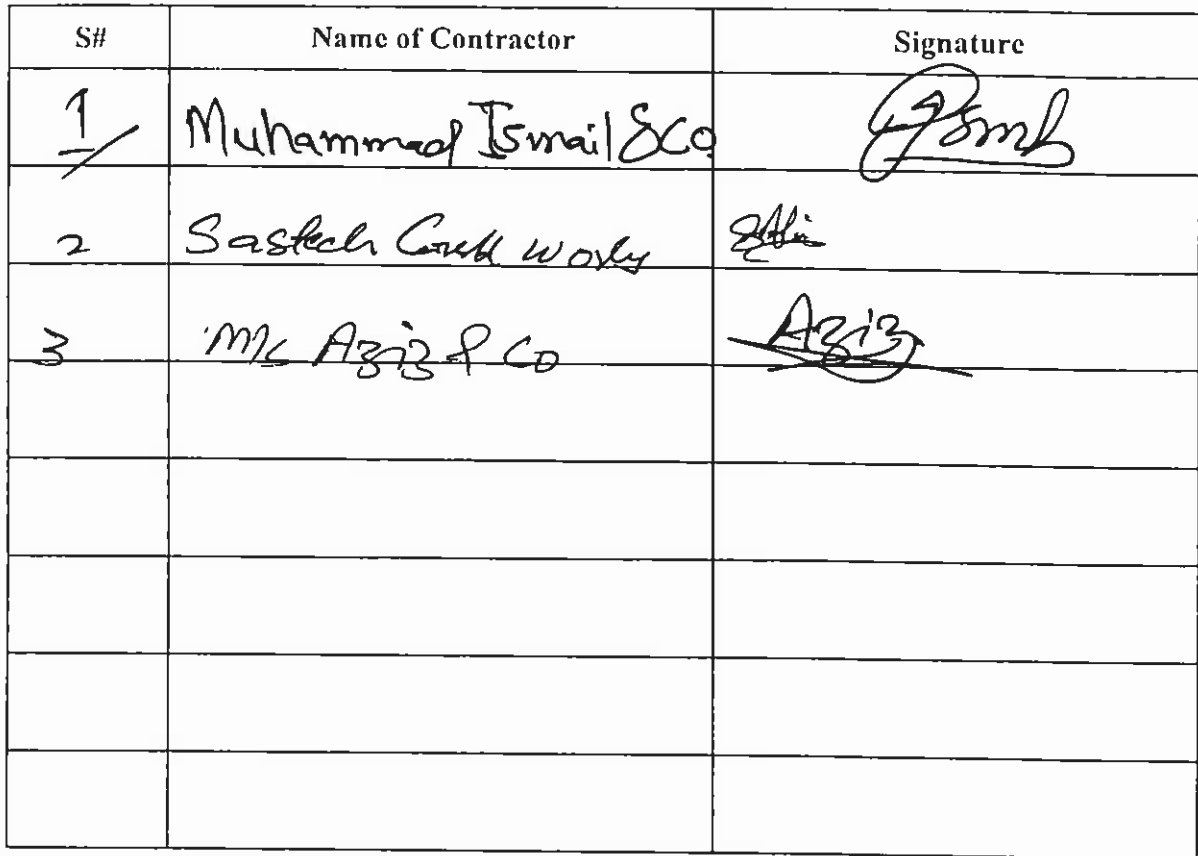 S# Name of Contractor Signature
1 Muhammad Ismail & Co
2 Sastech
3 M/s Aziz & Co Aziz